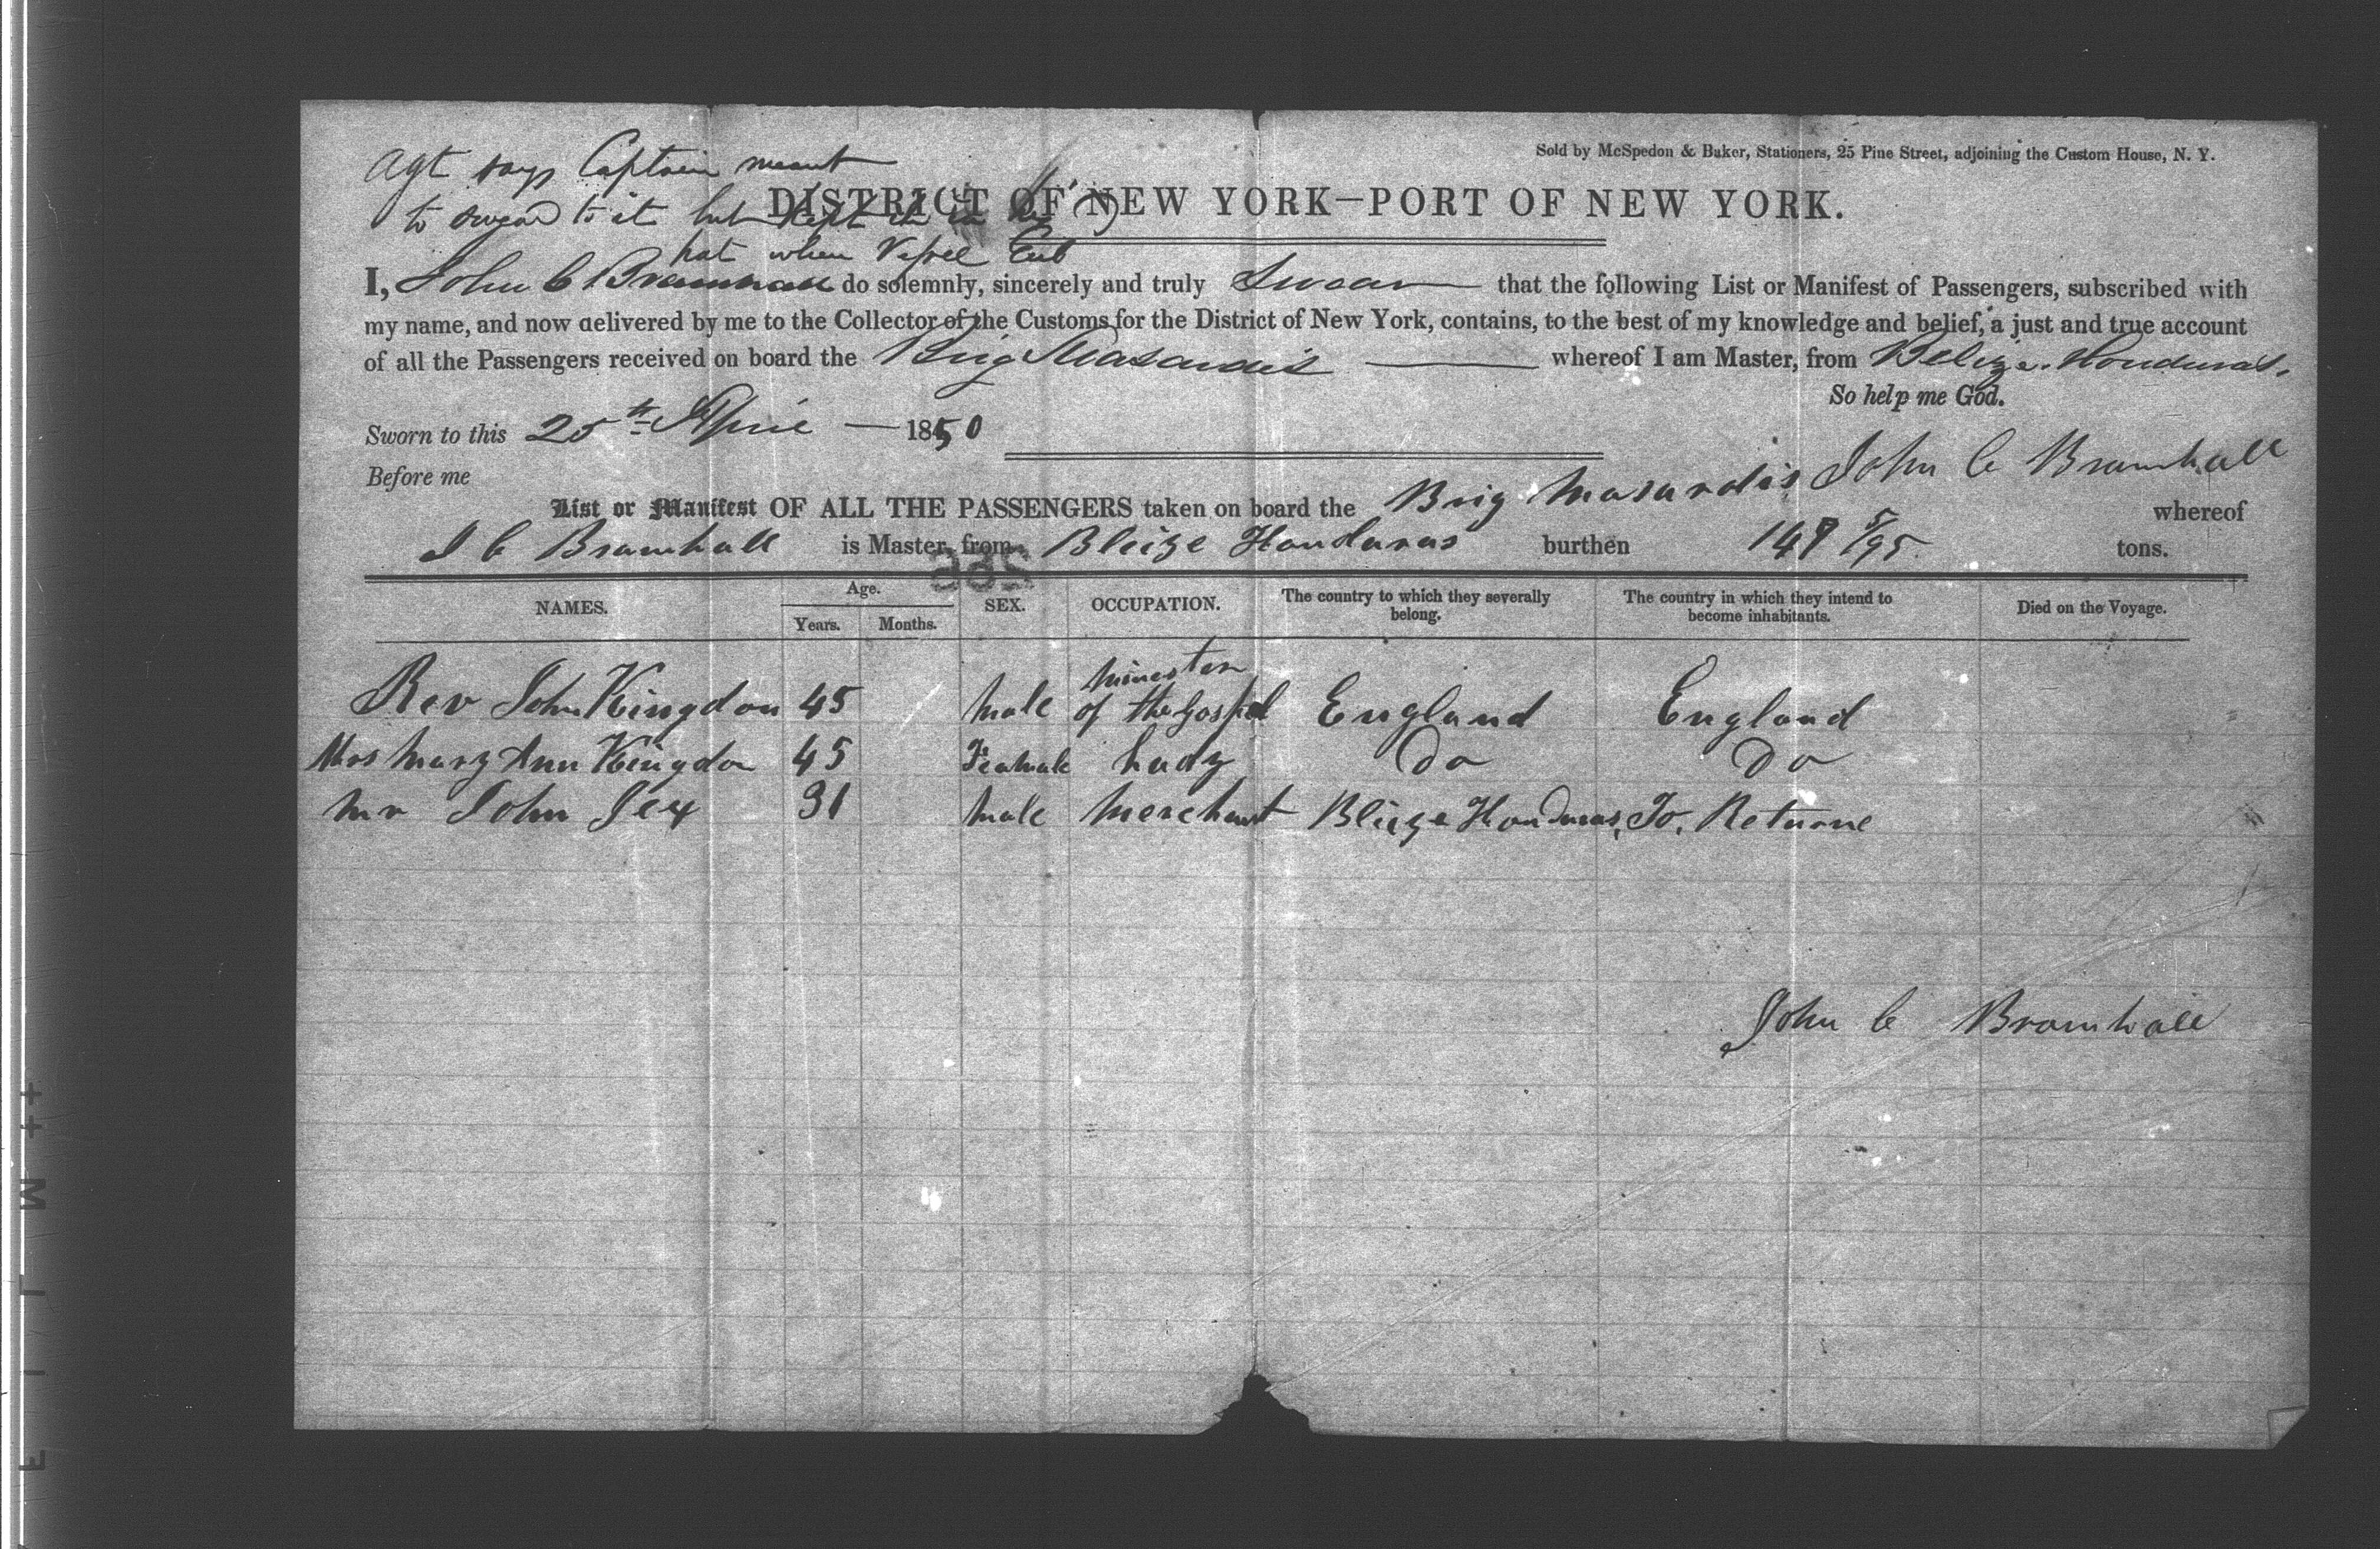 Sold by McSpedon & Baker, Stationers, 25 Pine Street, adjoining the Custom House, N. Y.
Agt says Captain meant
to swear to it but kept it in his
hat when Vessel Ent
DISTRICT OF NEW YORK—PORT OF NEW YORK.
I, John C Bramhall do solemnly, sincerely and truly Swear that the following List or Manifest of Passengers, subscribed with
my name, and now delivered by me to the Collector of the Customs for the District of New York, contains, to the best of my knowledge and belief, a just and true account
of all the Passengers received on board the Brig Masardis whereof I am Master, from Belize Honduras.
So help me God.
Sworn to this 25th April — 1850
Before me
John C Bramhall
List or Manifest OF ALL THE PASSENGERS taken on board the Brig Masardis whereof
J C Bramhall is Master, from Bleize Honduras burthen 149 5/95 tons.
NAMES. Age. Years. Months. SEX. OCCUPATION. The country to which they severally belong. The country in which they intend to become inhabitants. Died on the Voyage.
Rev John Kingdon 45 Male Minester of the Gospel England England
Mrs Mary Ann Kingdon 45 Feamale Lady Do Do
Mr John Jex 31 Male Merchant Bleize Honduras, To. Returne
John C Bramhall